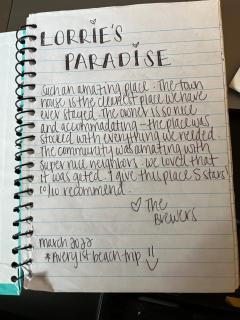 LORRIE'S
PARADISE
Such an amazing place. The town
house is the cleanest place we have
ever stayed. The owner is so nice
and accommodating - the place was
stocked with everything we needed.
The community was amazing with
super nice neighbors. We loved that
it was gated. I give this place 5 stars!
10/10 recommend.
♡ The
Brewers
march 2022
#Avery1stbeachtrip !!